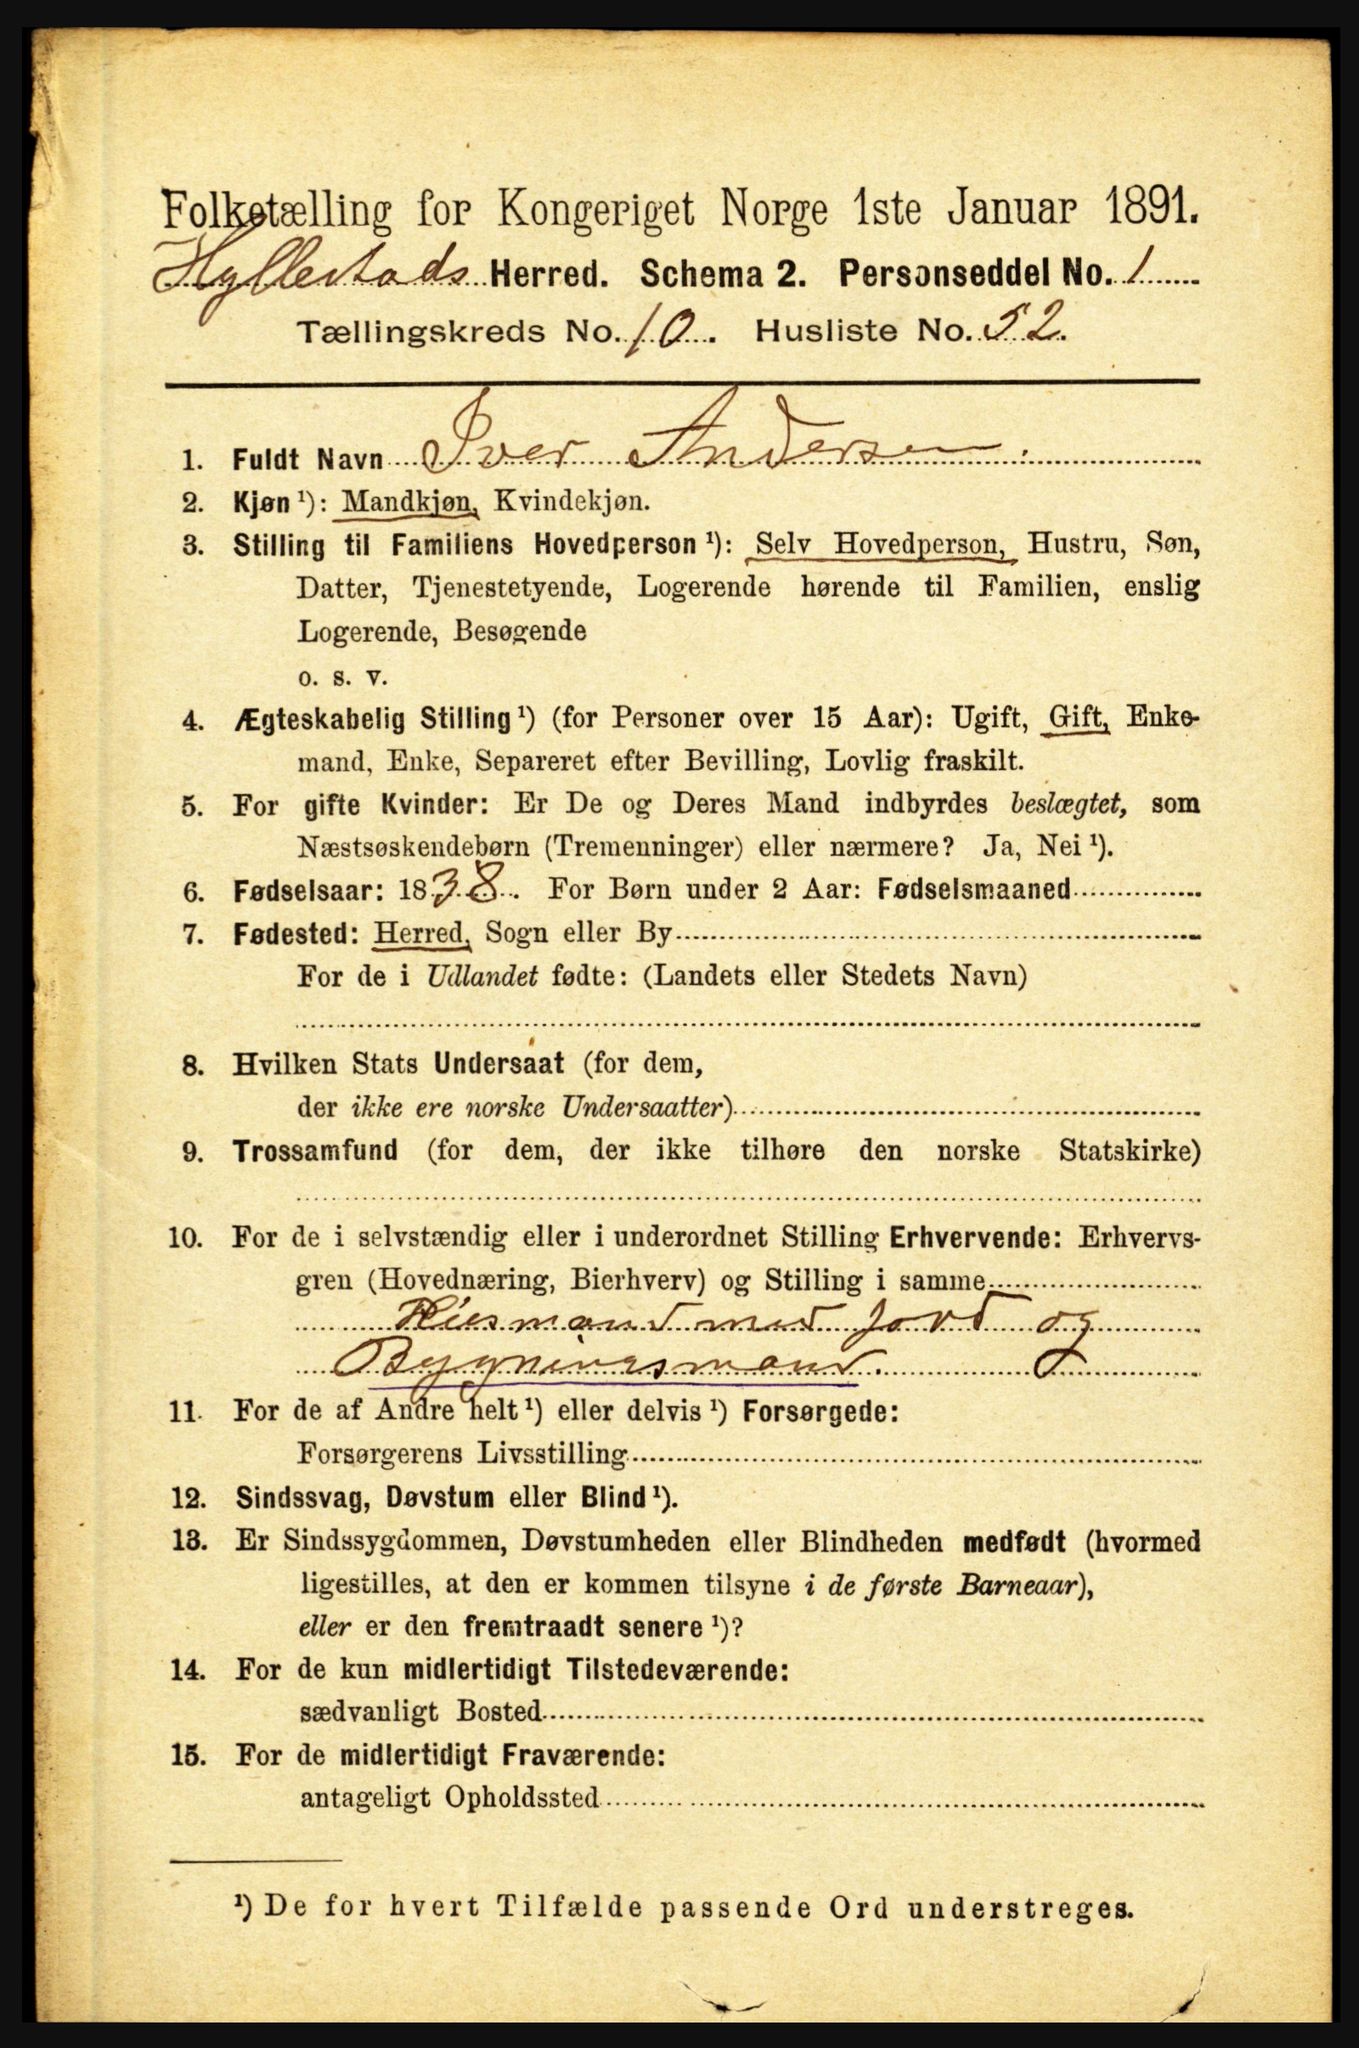 Folketælling for Kongeriget Norge 1ste Januar 1891.
Hyllestads Herred. Schema 2. Personseddel No. 1
Tællingskreds No. 10. Husliste No. 52.
1. Fuldt Navn Iver Andersen
2. Kjøn ¹): Mandkjøn, Kvindekjøn.
3. Stilling til Familiens Hovedperson ¹): Selv Hovedperson, Hustru, Søn,
Datter, Tjenestetyende, Logerende hørende til Familien, enslig
Logerende, Besøgende
o. s. v.
4. Ægteskabelig Stilling ¹) (for Personer over 15 Aar): Ugift, Gift, Enke-
mand, Enke, Separeret efter Bevilling, Lovlig fraskilt.
5. For gifte Kvinder: Er De og Deres Mand indbyrdes beslægtet, som
Næstsøskendebørn (Tremenninger) eller nærmere? Ja, Nei ¹).
6. Fødselsaar: 1838. For Børn under 2 Aar: Fødselsmaaned
7. Fødested: Herred, Sogn eller By
For de i Udlandet fødte: (Landets eller Stedets Navn)
8. Hvilken Stats Undersaat (for dem,
der ikke ere norske Undersaatter)
9. Trossamfund (for dem, der ikke tilhøre den norske Statskirke)
10. For de i selvstændig eller i underordnet Stilling Erhvervende: Erhvervs-
gren (Hovednæring, Bierhverv) og Stilling i samme
Husmand med Jord og
Bygningsmand.
11. For de af Andre helt ¹) eller delvis ¹) Forsørgede:
Forsørgerens Livsstilling
12. Sindssvag, Døvstum eller Blind ¹).
13. Er Sindssygdommen, Døvstumheden eller Blindheden medfødt (hvormed
ligestilles, at den er kommen tilsyne i de første Barneaar),
eller er den fremtraadt senere ¹)?
14. For de kun midlertidigt Tilstedeværende:
sædvanligt Bosted
15. For de midlertidigt Fraværende:
antageligt Opholdssted
¹) De for hvert Tilfælde passende Ord understreges.